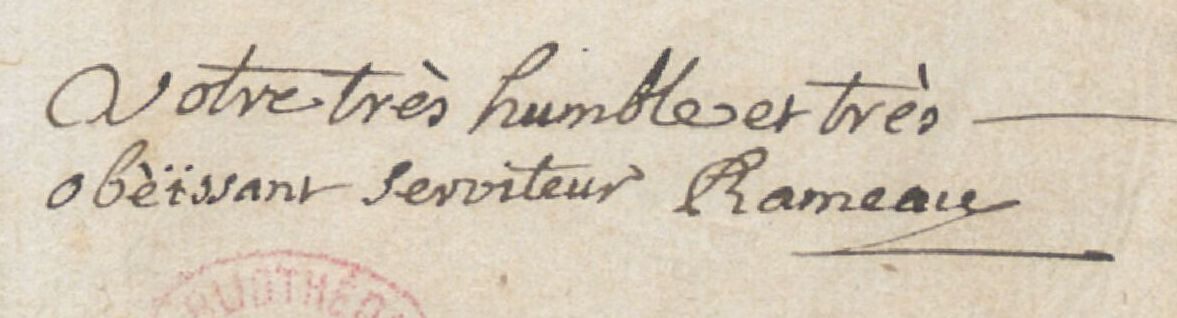 Votre très humble et très
obèïssant serviteur Rameau